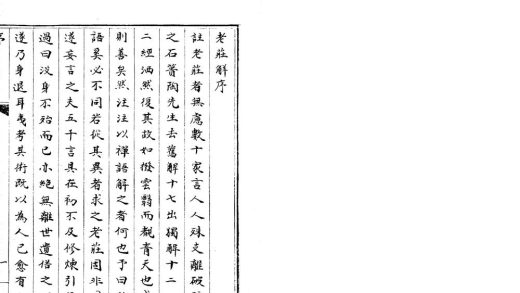 老莊解序
註老莊者無慮數十家言人人殊支離破
之石簣陶先生去舊解十七出獨解十二
二經洒然復其故如撥雲翳而覩青天也
則善矣然注注以禪語解之者何也予曰
語奚必不同若從其異者求之老莊固非
遂妄言之夫五千言具在初不及修煉引
過曰沒身不殆而已亦絕無離世遺俗之
遂乃身退耳夷考其術既以為人已愈有
序
一